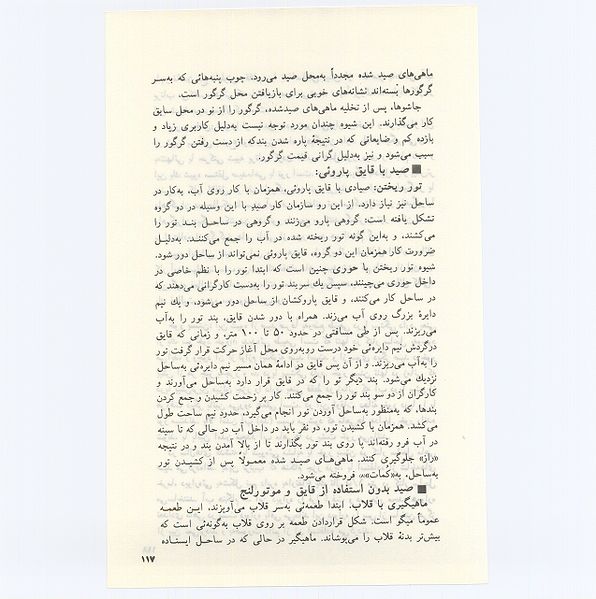 ماهی‌های صید شده مجدداً به‌محل صید می‌رود. چوب پنبه‌هائی که به‌سر
گرگورها بسته‌اند نشانه‌های خوبی برای بازیافتن محل گرگور است.
جاشوها، پس از تخلیه ماهی‌های صیدشده، گرگور را از نو در محل سابق
کار می‌گذارند. این شیوه چندان مورد توجه نیست به‌دلیل کاربری زیاد و
بازده کم و ضایعاتی که در نتیجهٔ پاره شدن بندکه از دست رفتن گرگور را
سبب می‌شود و نیز به‌دلیل گرانی قیمت گرگور.
■ صید با قایق پاروئی:
تور ریختن: صیادی با قایق پاروئی، همزمان با کار روی آب، به‌کار در
ساحل نیز نیاز دارد. از این رو سازمان کار صید با این وسیله در دو گروه
تشکل یافته است: گروهی پارو می‌زنند و گروهی در ساحل بند تور را
می‌کشند، و به‌این گونه تور ریخته شده در آب را جمع می‌کنند. به‌دلیل
ضرورت کار همزمان این دو گروه، قایق پاروئی نمی‌تواند از ساحل دور شود.
شیوه تور ریختن با حوری چنین است که ابتدا تور را با نظم خاصی در
داخل حوری می‌چینند، سپس یك سربند تور را به‌دست کارگرانی می‌دهند که
در ساحل کار می‌کنند، و قایق پاروکشان از ساحل دور می‌شود، و یك نیم
دایرهٔ بزرگ روی آب می‌زند. همراه با دور شدن قایق، بند تور را به‌آب
می‌ریزند. پس از طی مسافتی در حدود ۵۰ تا ۱۰۰ متر، و زمانی که قایق
درگردش نیم دایره‌ئی خود درست روبه‌روی محل آغاز حرکت قرار گرفت تور
را به‌آب می‌ریزند. و از آن پس قایق در ادامهٔ همان مسیر نیم دایره‌ئی به‌ساحل
نزدیك می‌شود. بند دیگر تو را که در قایق قرار دارد به‌ساحل می‌آورند و
کارگران از دو سو بند تور را جمع می‌کنند. کار پر زحمت کشیدن و جمع کردن
بندها، که به‌منظور به‌ساحل آوردن تور انجام می‌گیرد، حدود نیم ساعت طول
می‌کشد. همزمان با کشیدن تور، دو نفر باید در داخل آب در حالی که تا سینه
در آب فرو رفته‌اند پا روی بند تور بگذارند تا از بالا آمدن بند و در نتیجه
«راز» جلوگیری کنند. ماهی‌های صید شده معمولاً پس از کشیدن تور
به‌ساحل، به«کُمات» فروخته می‌شود.
■ صید بدون استفاده از قایق و موتورلنج
ماهیگیری با قلاب. ابتدا طعمه‌ئی به‌سر قلاب می‌آویزند، این طعمه
عموماً میگو است. شکل قراردادن طعمه بر روی قلاب به‌گونه‌ئی است که
بیش‌تر بدنهٔ قلاب را می‌پوشاند. ماهیگیر در حالی که در ساحل ایستاده
۱۱۷